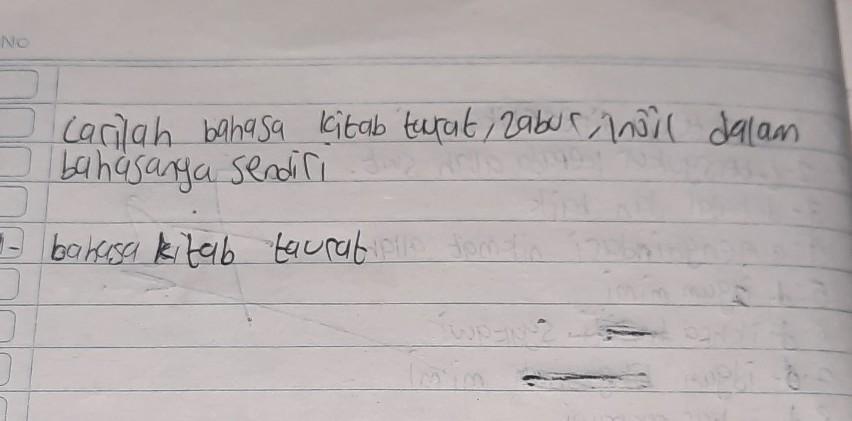 NO
Carilah bahasa kitab turat, zabur, injil dalam
bahasanya sendiri
1- bahasa kitab taurat